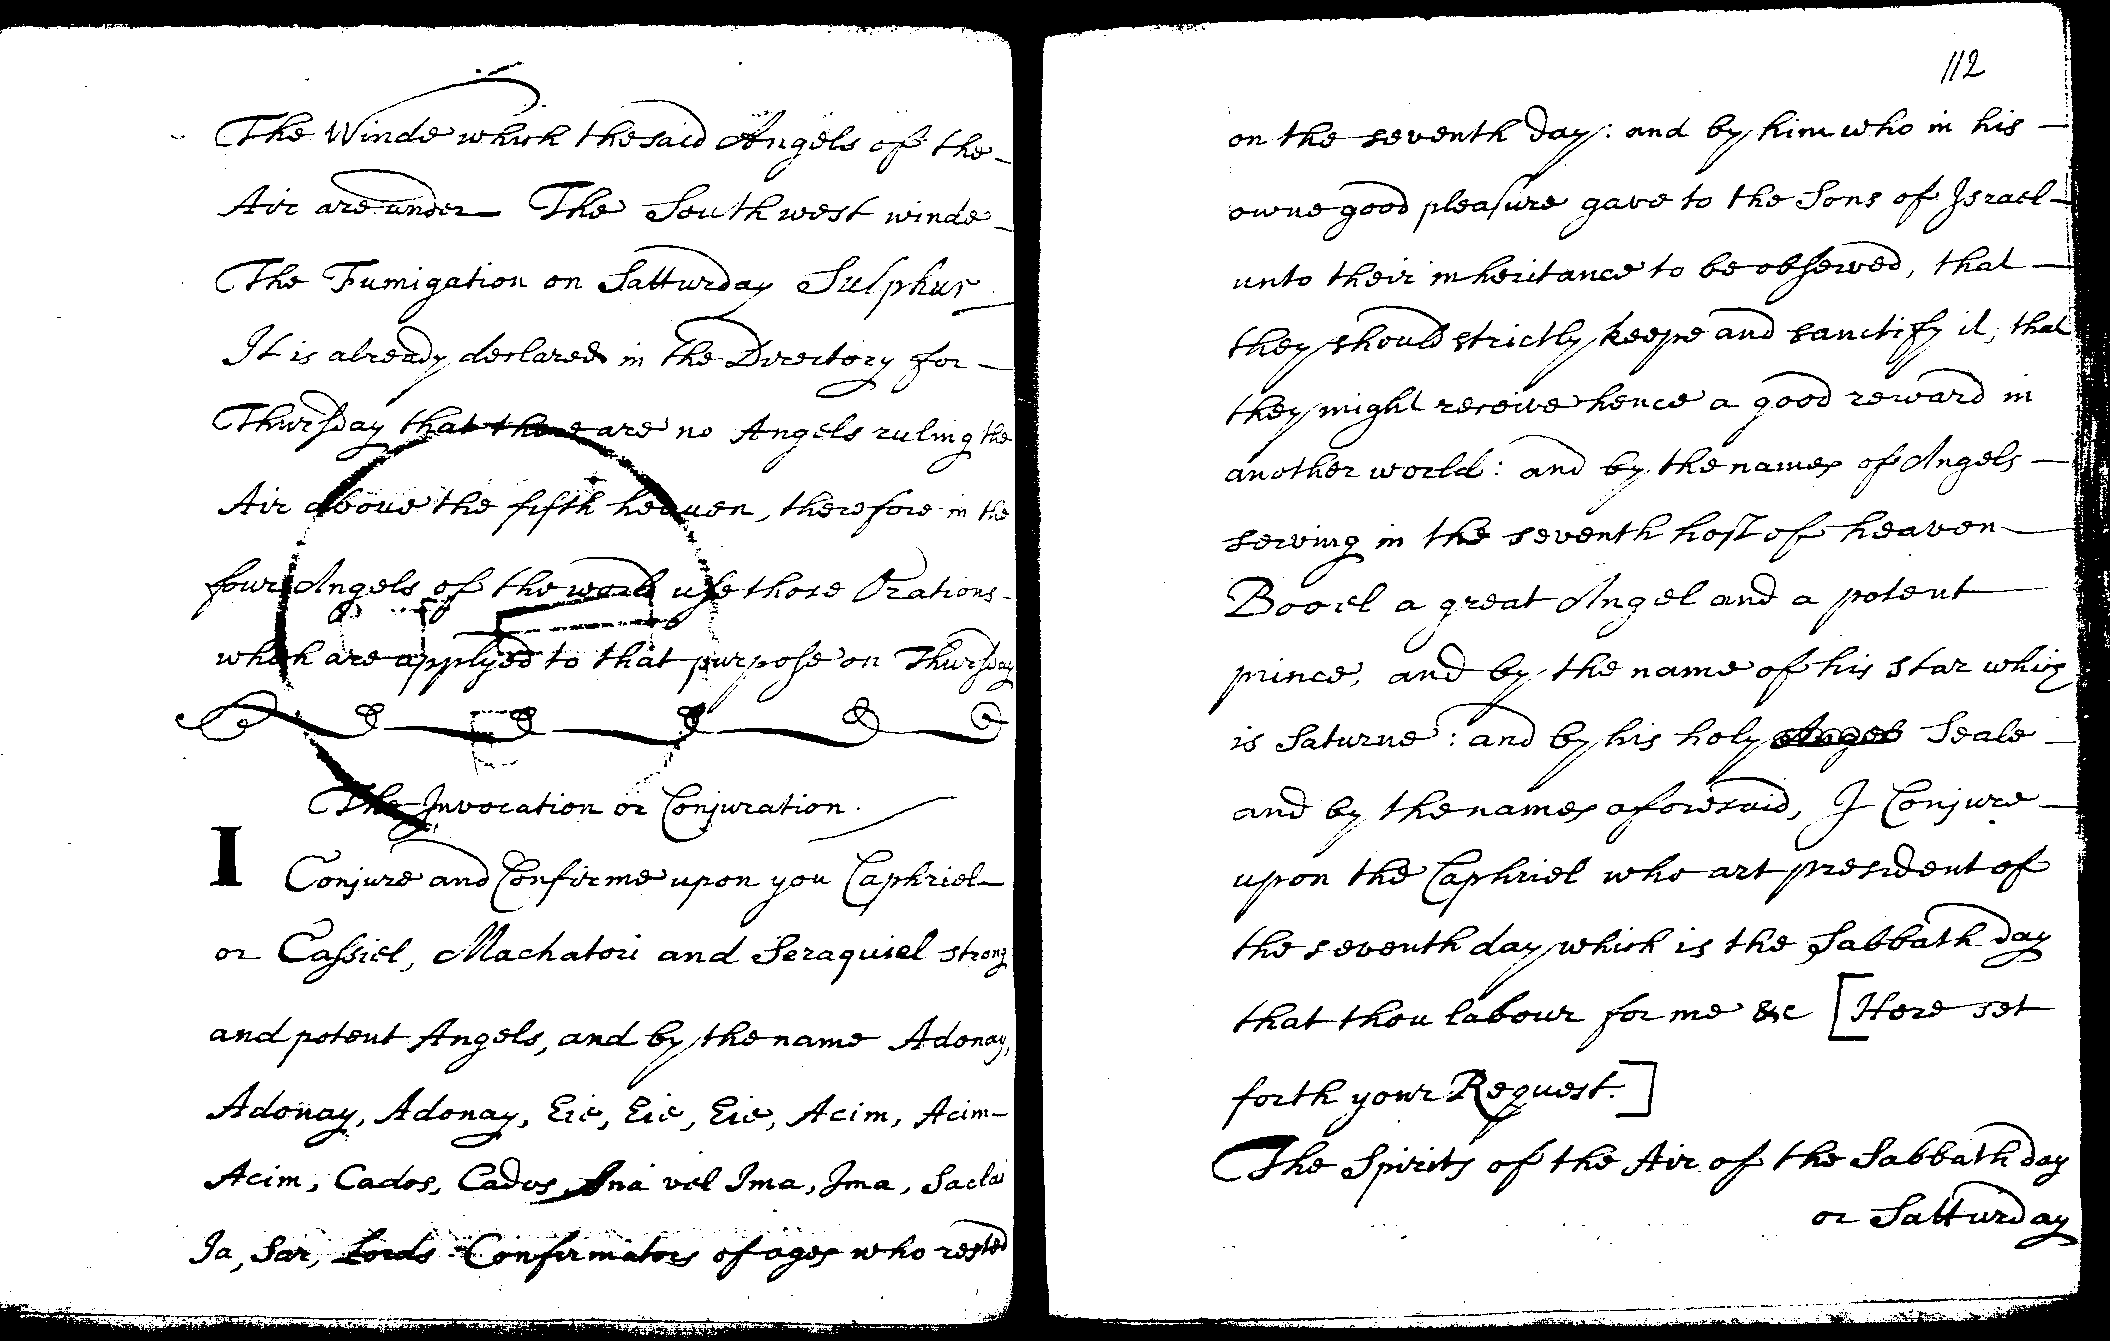 The Winde which the said Angels of the
Air are under The Southwest winde
The Fumigation on Satturday Sulphur
It is already declared in the Directory for
Thursday that there are no Angels ruling the
Air above the fifth heaven, therefore in the
four Angels of the world use those Orations
which are applyed to that purpose on Thursday
The Invocation or Conjuration.
I Conjure and Confirme upon you Caphriel
or Cassiel, Machatori and Seraquiel strong
and potent Angels, and by the name Adonay,
Adonay, Adonay, Eie, Eie, Eie, Acim, Acim
Acim, Cados, Cados, Ina vel Ima, Ima, Saclai
Ja, Sar, Lords Confirmators of ages who rested
112
on the seventh day: and by him who in his
owne good pleasure gave to the Sons of Israel
unto their inheritance to be observed, that
they should strictly keepe and sanctify it, that
they might receive hence a good reward in
another world: and by the names of Angels
serving in the seventh host of heaven
Booel a great Angel and a potent
prince, and by the name of his star which
is Saturne: and by his holy Seale
and by the names aforesaid, I Conjure
upon the Caphriel who art president of
the seventh day which is the Sabbath day
that thou labour for me &c [Here set
forth your Request.]
The Spirits of the Air of the Sabbath day
or Satturday